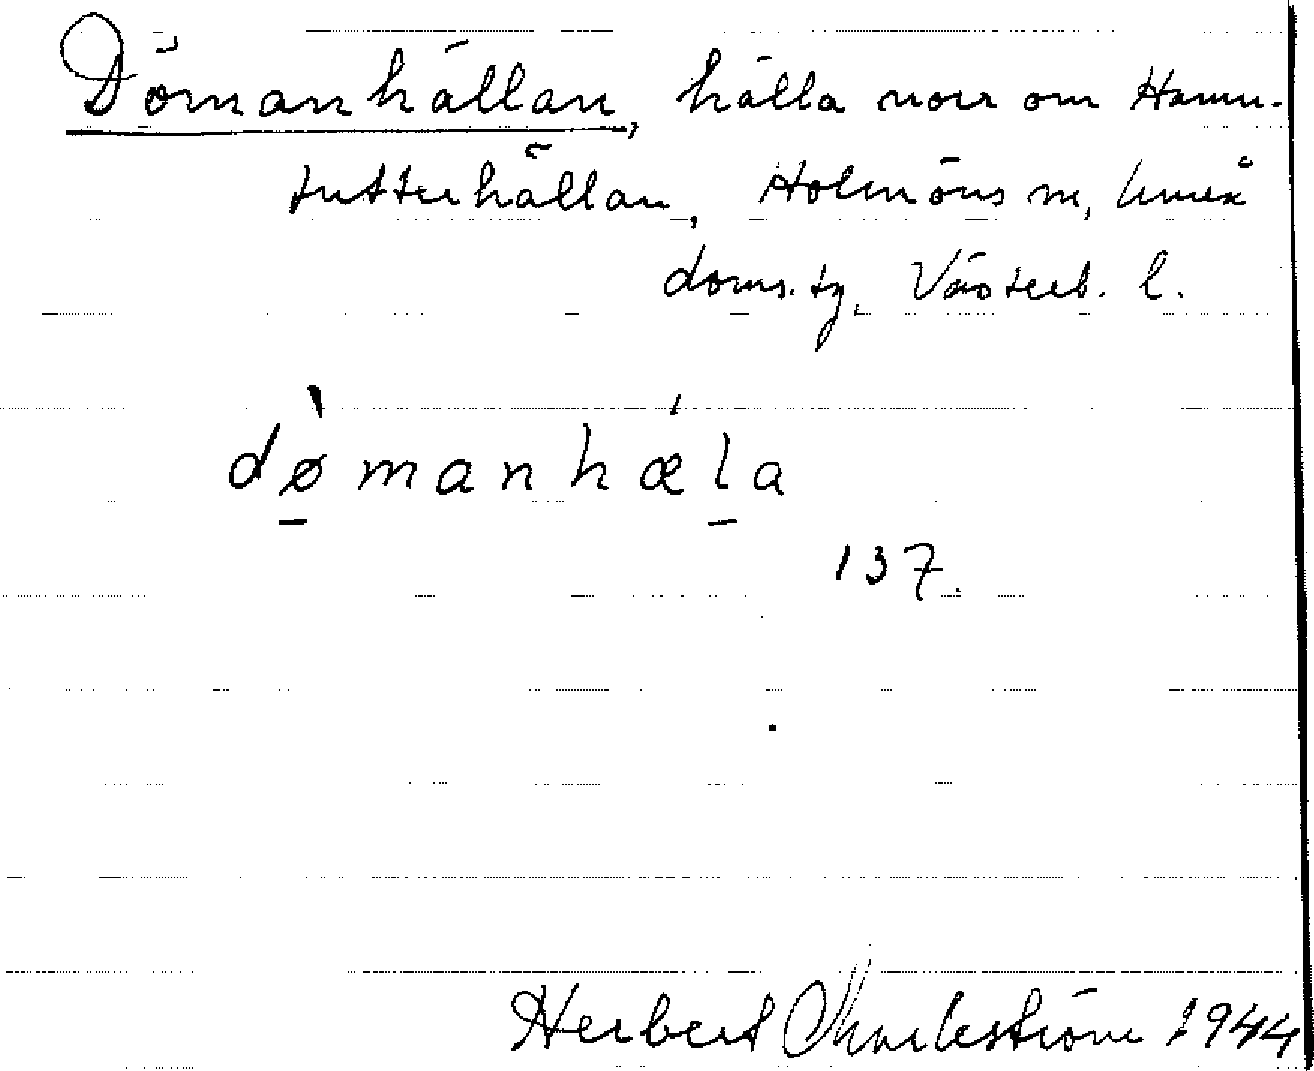 Dömanhällan, hälla norr om Hamn-
tutterhällan, Holmöns sn, Umeå
doms. tg, Västerb. l.
dø̀manhǽla
137.
Herbert Markström 1944